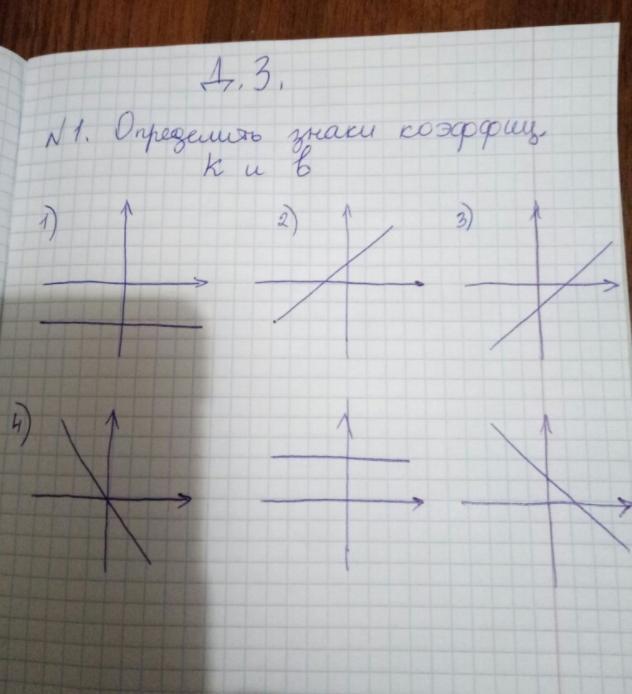 Д.З.
№1. Определить знаки коэффиц.
к и в
1) 2) 3)
4)